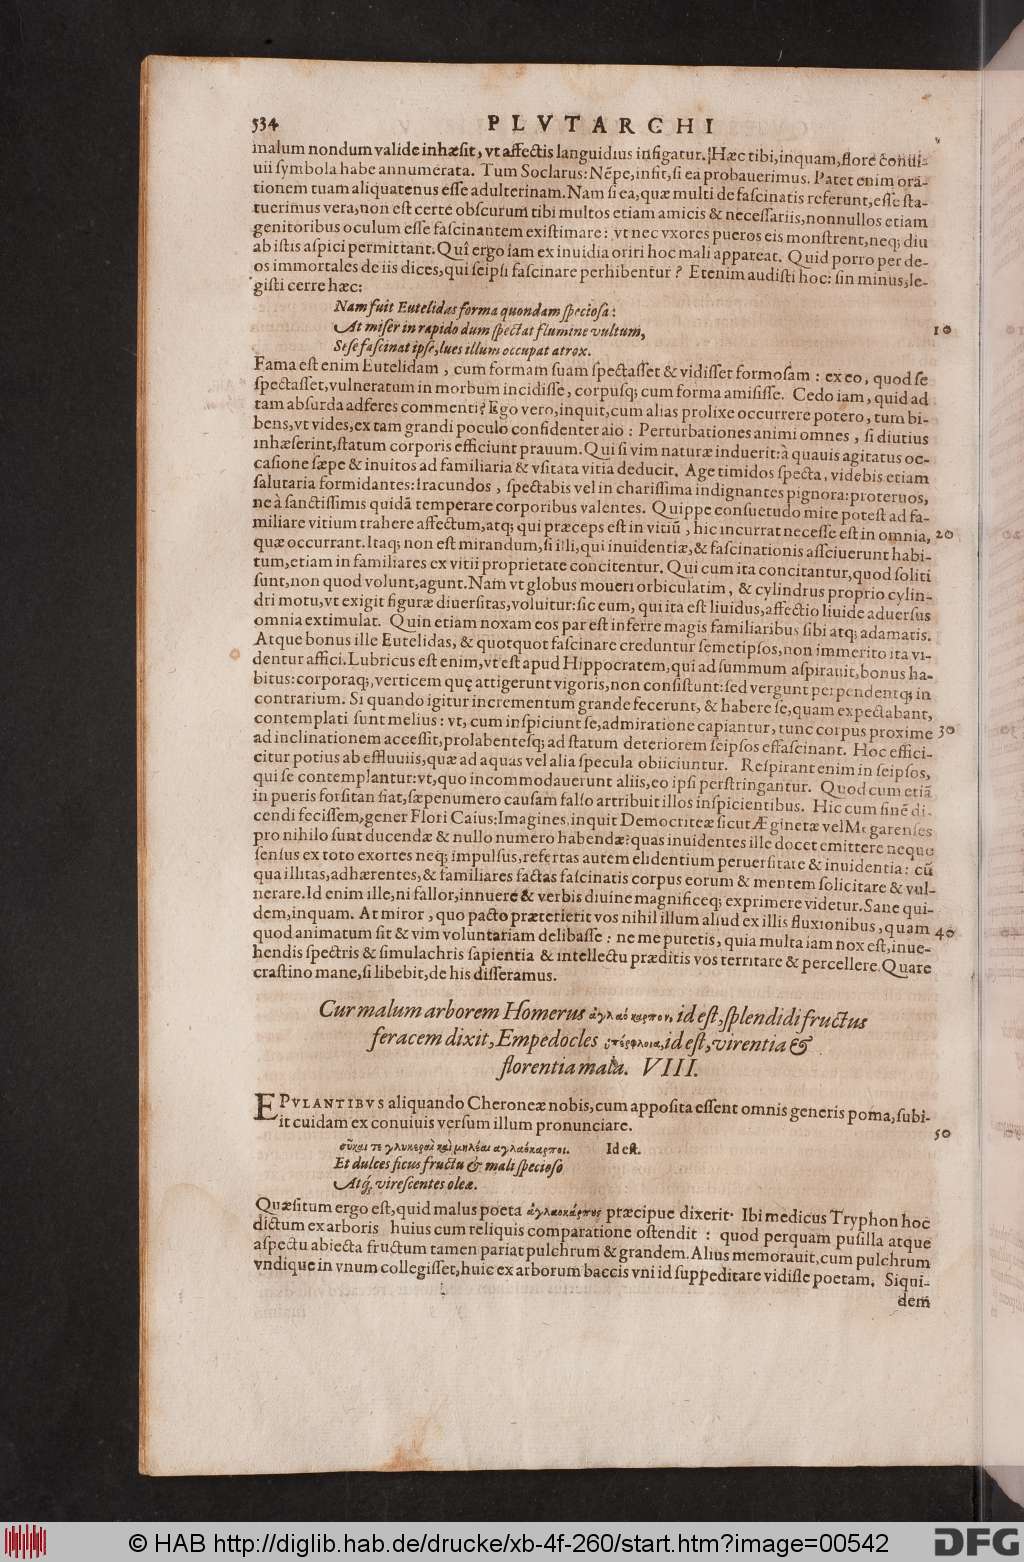 534 PLVTARCHI
malum nondum valide inhæsit, vt affectis languidius infigatur. Hæc tibi, inquam, flore conui-
uii symbola habe annumerata. Tum Soclarus: Nẽpe, insit, si ea probauerimus. Patet enim ora-
tionem tuam aliquatenus esse adulterinam. Nam si ea, quæ multi de fascinatis referunt, esse sta-
tuerimus vera, non est certe obscurum tibi multos etiam amicis & necessariis, nonnullos etiam
genitoribus oculum esse fascinantem existimare: vt nec vxores pueros eis monstrent, neq; diu
ab istis aspici permittant. Quî ergo iam ex inuidia oriri hoc mali appareat. Quid porro per de-
os immortales de iis dices, qui seipsi fascinare perhibentur? Etenim audisti hoc: sin minus, le-
gisti certe hæc:
Nam fuit Eutelidas forma quondam speciosa:
At miser in rapido dum spectat flumine vultum, 10
Sese fascinat ipse, lues illum occupat atrox.
Fama est enim Eutelidam, cum formam suam spectasset & vidisset formosam: ex eo, quod se
spectasset, vulneratum in morbum incidisse, corpusq; cum forma amisisse. Cedo iam, quid ad
tam absurda adferes commenti? Ego vero, inquit, cum alias prolixe occurrere potero, tum bi-
bens, vt vides, ex tam grandi poculo confidenter aio: Perturbationes animi omnes, si diutius
inhæserint, statum corporis efficiunt prauum. Qui si vim naturæ induerit: à quauis agitatus oc-
casione sæpe & inuitos ad familiaria & vsitata vitia deducit. Age timidos specta, videbis etiam
salutaria formidantes: Iracundos, spectabis vel in charissima indignantes pignora: proteruos,
ne à sanctissimis quidã temperare corporibus valentes. Quippe consuetudo mire potest ad fa-
miliare vitium trahere affectum, atq; qui præceps est in vitiũ, hic incurrat necesse est in omnia, 20
quæ occurrant. Itaq; non est mirandum, si illi, qui inuidentiæ, & fascinationis assciuerunt habi-
tum, etiam in familiares ex vitii proprietate concitentur. Qui cum ita concitantur, quod soliti
sunt, non quod volunt, agunt. Nam vt globus moueri orbiculatim, & cylindrus proprio cylin-
dri motu, vt exigit figuræ diuersitas, voluitur: sic eum, qui ita est liuidus, affectio liuide aduersus
omnia extimulat. Quin etiam noxam eos par est inferre magis familiaribus sibi atq; adamatis.
Atque bonus ille Eutelidas, & quotquot fascinare creduntur semetipsos, non immerito ita vi-
dentur affici. Lubricus est enim, vt est apud Hippocratem, qui ad summum aspirauit, bonus ha-
bitus: corporaq;, verticem quę attigerunt vigoris, non consistunt: sed vergunt perpendentq; in
contrarium. Si quando igitur incrementum grande fecerunt, & habere se, quam expectabant,
contemplati sunt melius: vt, cum inspiciunt se, admiratione capiantur, tunc corpus proxime 30
ad inclinationem accessit, prolabentesq; ad statum deteriorem seipsos effascinant. Hoc effici-
citur potius ab effluuiis, quæ ad aquas vel alia specula obiiciuntur. Respirant enim in seipsos,
qui se contemplantur: vt, quo incommodauerunt aliis, eo ipsi perstringantur. Quod cum etiã
in pueris forsitan fiat, sæpenumero causam falso attribuit illos inspicientibus. Hic cum finẽ di-
cendi fecissem, gener Flori Caius: Imagines, inquit Democriteæ sicut Æginetæ vel Megarenses
pro nihilo sunt ducendæ & nullo numero habendæ? quas inuidentes ille docet emittere neque
sensus ex toto exortes neq; impulsus, refertas autem elidentium peruersitate & inuidentia: cũ
qua illitas, adhærentes, & familiares factas fascinatis corpus eorum & mentem solicitare & vul-
nerare. Id enim ille, ni fallor, innuere & verbis diuine magnificeq; exprimere videtur. Sane qui-
dem, inquam. At miror, quo pacto præterierit vos nihil illum aliud ex illis fluxionibus, quam 40
quod animatum sit & vim voluntariam delibasse: ne me putetis, quia multa iam nox est, inue-
hendis spectris & simulachris sapientia & intellectu præditis vos territare & percellere. Quare
crastino mane, si libebit, de his disseramus.
Cur malum arborem Homerus ἀγλαόκαρπον, id est, splendidi fructus
feracem dixit, Empedocles ὑπέρφλοια, id est, virentia &
florentia mala. VIII.
EPVLANTIBVS aliquando Cheroneæ nobis, cum apposita essent omnis generis poma, subi-
it cuidam ex conuiuis versum illum pronunciare. 50
σῦκαι τε γλυκεραὶ καὶ μηλέαι αγλαόκαρποι. Id est.
Et dulces ficus fructu & mali specioso
Atq; virescentes oleæ.
Quæsitum ergo est, quid malus poeta ἀγλαοκάρπους præcipue dixerit. Ibi medicus Tryphon hoc
dictum ex arboris huius cum reliquis comparatione ostendit: quod perquam pusilla atque
aspectu abiecta fructum tamen pariat pulchrum & grandem. Alius memorauit, cum pulchrum
vndique in vnum collegisset, huic ex arborum baccis vni id suppeditare vidisse poetam. Siqui-
dem
© HAB http://diglib.hab.de/drucke/xb-4f-260/start.htm?image=00542
DFG